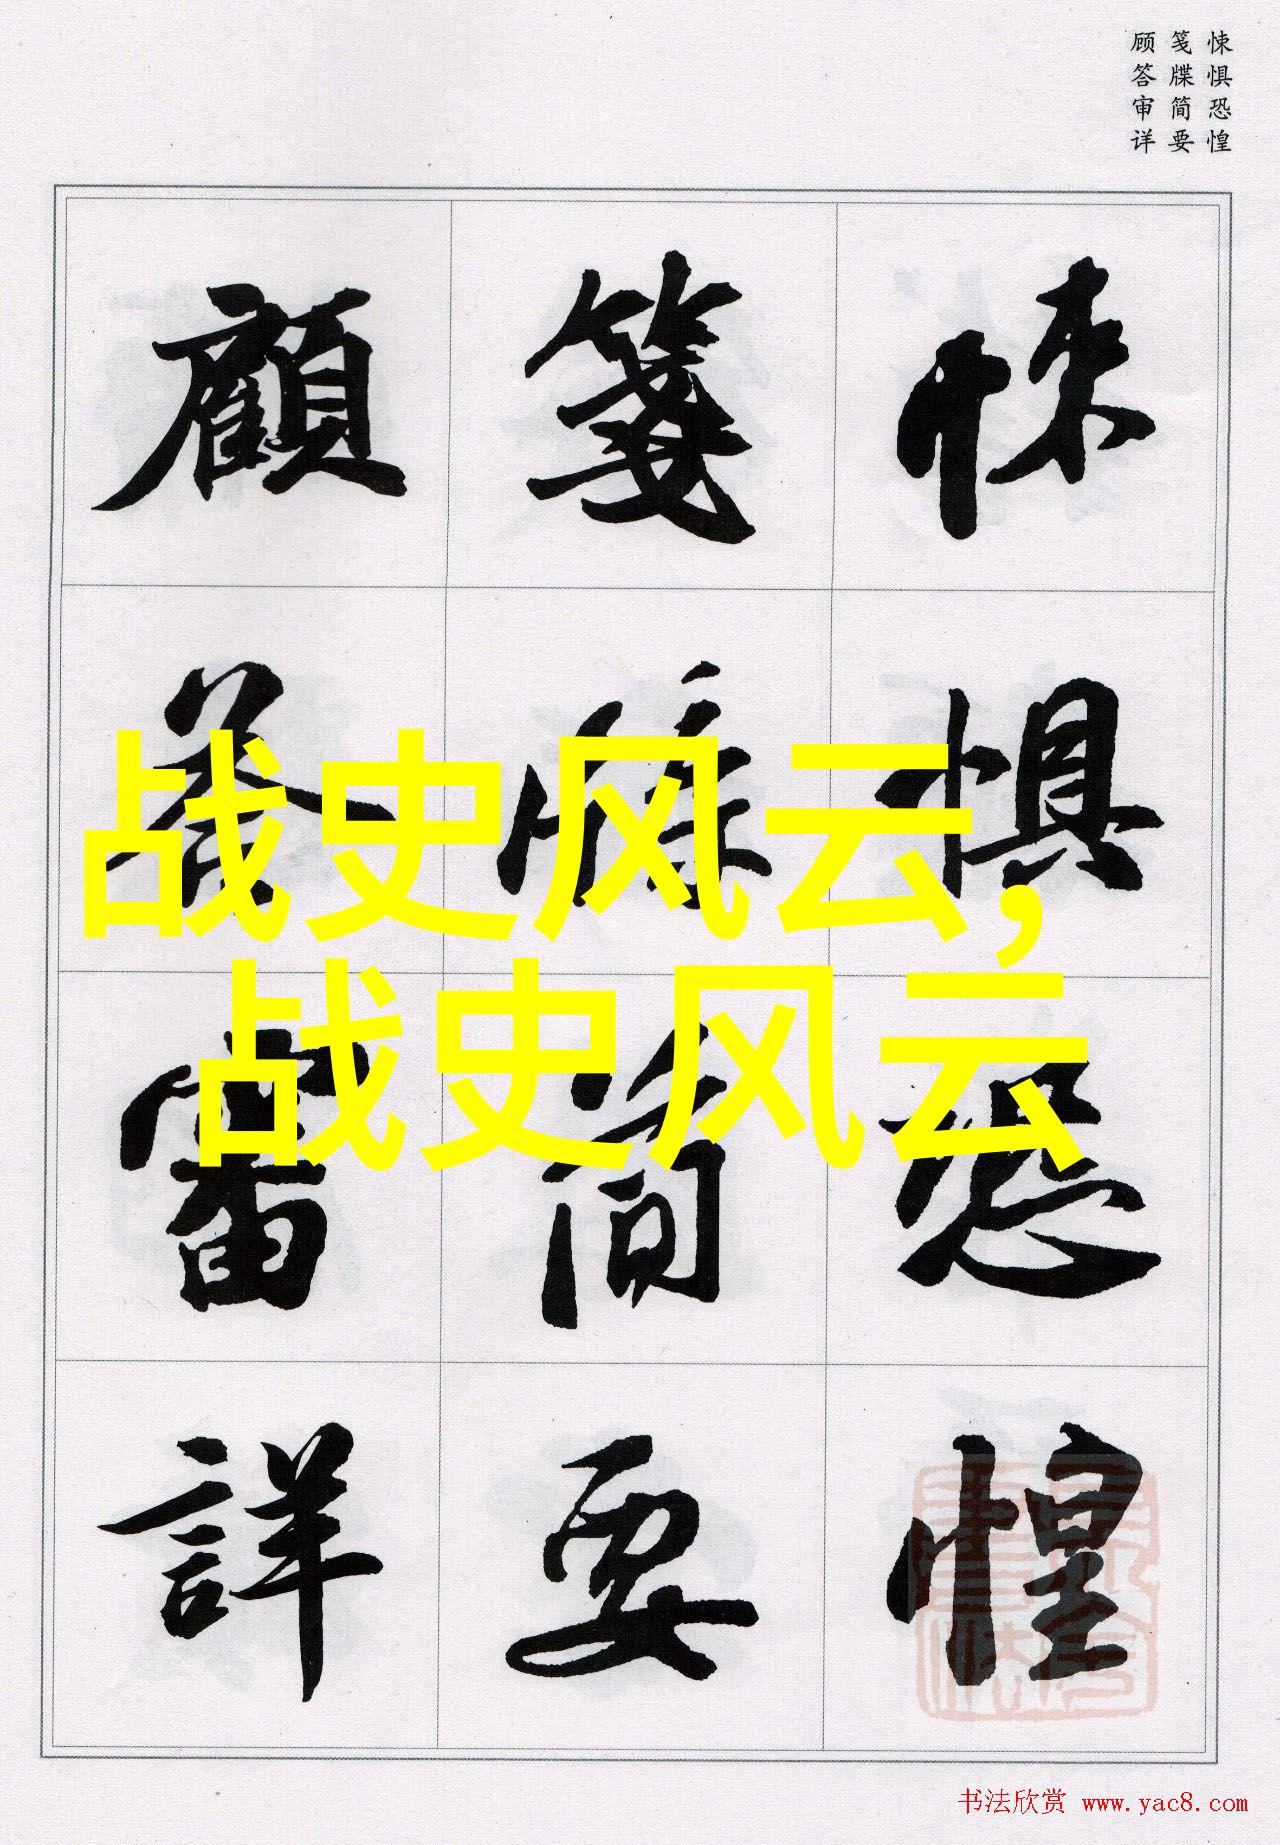 悚惧恐惶
笺牒简要
顾答审详
悚惧恐惶
笺牒简要
顧答審詳
战史风云,
战史风云
书法欣赏 www.yac8.com